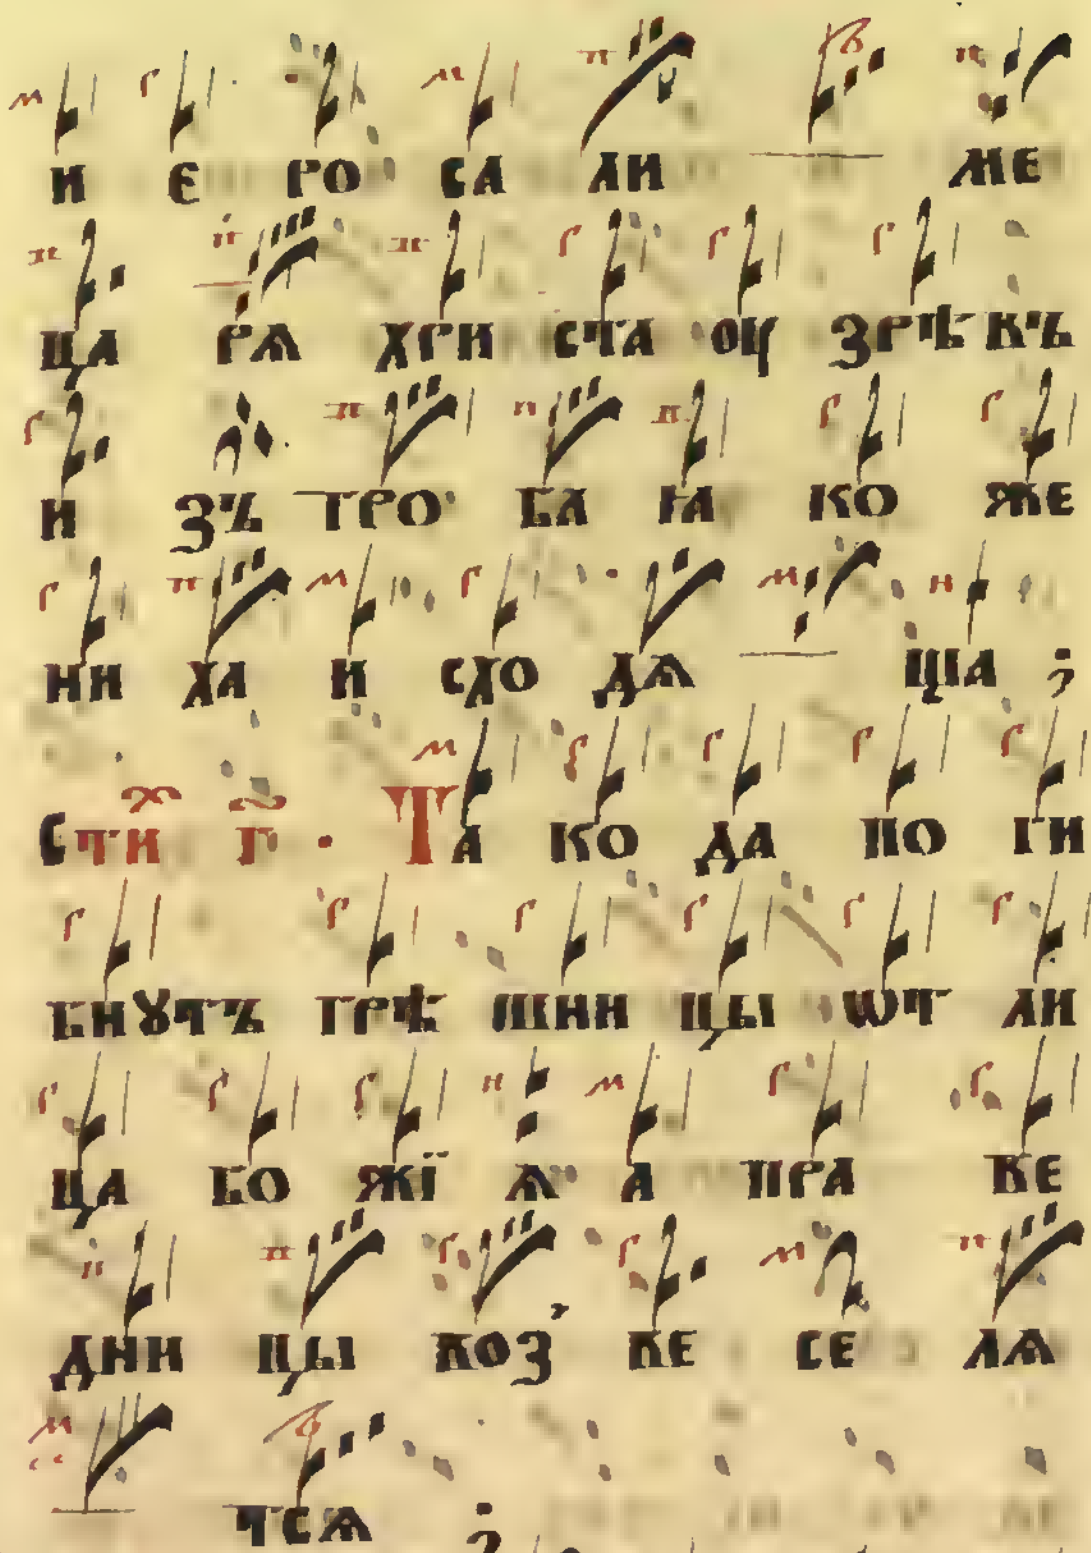 И Є РО СА ЛИ МЕ
ЦА РѦ ХРИ СТА ОУ ЗРѢ ВЪ
И ЗЪ ГРО БА ꙖА КО ЖЕ
НИ ХА И СХО ДѦ ЩА ;
СТИ Г · ТА КО ДА ПО ГИ
БНꙊТЪ ГРѢ ШНИ ЦЫ ѾТ ЛИ
ЦА БО ЖЇ Ѧ А ПРА ВЕ
ДНИ ЦЫ ВОЗ ВЕ СЕ ЛѦ
ТСѦ ;